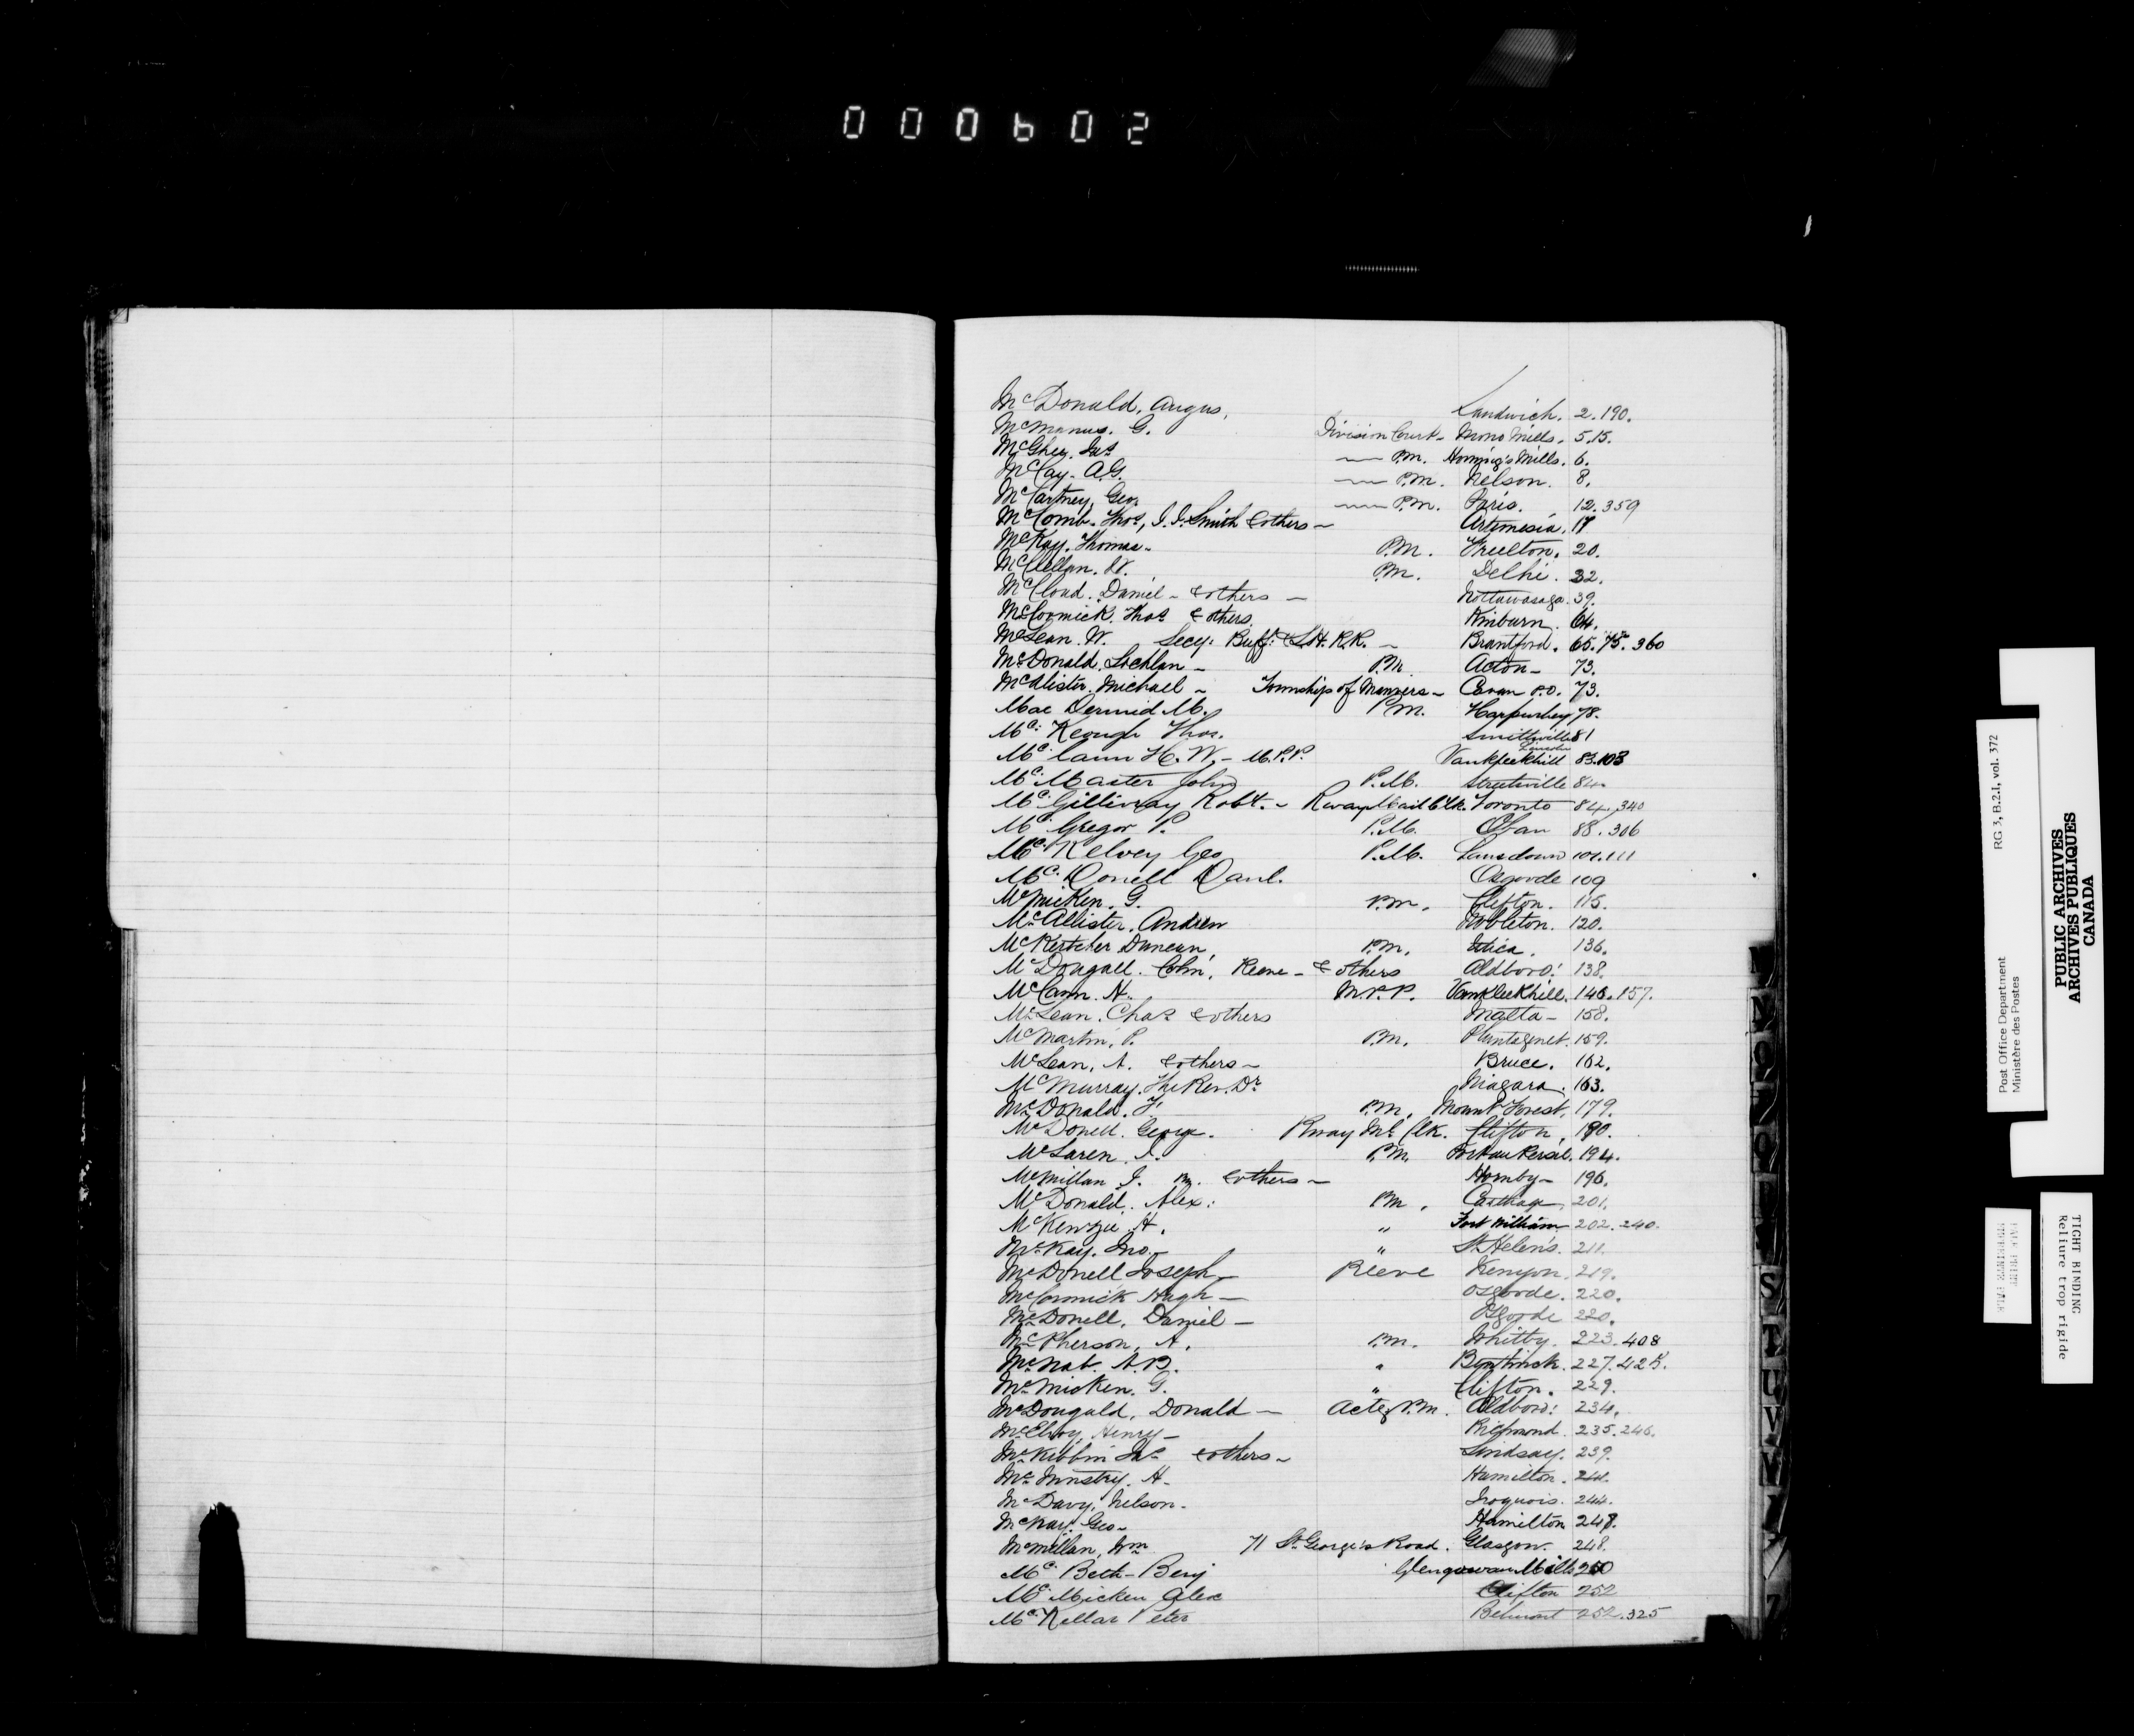 000602
McDonald, Angus, Sandwich. 2. 190.
McManus. G. Division Court - Mono Mills. 5.15.
McGhee. Jas — P.M. Horning's Mills. 6.
McCay. A.G. — P.M. Nelson. 8.
McCartney, Geo. — P.M. Paris. 12. 359
McComb. Thos, J.J. Smith & others — Artemesia. 17
McKay. Thomas. P.M. Freelton. 20.
McClellan. W. P.M. Delhi. 32.
McCloud. Daniel - & others — Nottawasaga. 39.
McCormick. Thos & others. Kinburn. 64.
McLean. W. Secy: Buff: & L.H. R.R. — Brantford. 65. 75. 360
McDonald, Lochlan — P.M. Acton — 73.
McAlister. Michael — Township of Manvers — Cavan P.O. 73.
Mac Dermid M. P.M. Harpurhey 78.
Mc Keough Thos. Smithville 81
Lincoln
Mc Cann H. W. - M.P.P. Vankleekhill 83.103
Mc Master John P.M. Streetsville 84.
Mc Gillivray Robt. - Rway Mail Clk. Toronto 84, 340
Mc Gregor P. P.M. Oban 88. 306
Mc Kelvey Geo P.M. Lansdown 101.111
Mc Donell Danl. Osgoode 109
McMicken. G. P.M. Clifton. 115.
McAllister. Andrew Nobleton. 120.
McKertcher Duncan, P.M. Utica. 136.
McDougall. Colin, Reeve - & others Aldboro: 138.
McCann. H. M.P.P. Vankleekhill. 146. 157.
McLean. Chas & others Malta — 158.
McMartin, P. P.M. Plantagenet. 159.
McLean, A. & others — Bruce. 162.
McMurray. The Rev. Dr Niagara. 163.
McDonald. F. P.M. Mount Forest. 179.
McDonell. George. Rway Ml Clk. Clifton, 190.
McLaren. P.M. 194.
McMillan J. & others — Hornby — 196.
McDonald. Alex: P.M. Carthage. 201.
McKenzie. H. " Fort William 202. 240.
McKay. Jno. — " St. Helen's. 211.
McDonell Joseph — Reeve Kenyon. 219.
McCormick Hugh — Osgoode. 220.
McDonell, Daniel — Osgoode 220.
McPherson, A. P.M. Whitby. 223. 408
McNab. A.B. " Bentinck. 227. 425.
McMicken. G. " Clifton. 229.
McDougald, Donald — Actg P.M. Aldboro: 234.
McElroy, Henry — Richmond. 235. 246.
McKibbin & others — Lindsay. 239.
McKinstry. H. Hamilton. 241.
McDavy, Nelson. Iroquois. 244.
McKay. Geo. Hamilton 248.
McMillan, Wm 71 St. George's Road. Glasgow. 248.
Mc Beth - Benj Mills 250
Mc Micken Alex Clifton 252
Mc Kellar Peter Belmont 252. 325
N
S
T
U
V
W
Post Office Department
Ministère des Postes
RG 3, B.2.1, vol. 372
PUBLIC ARCHIVES
ARCHIVES PUBLIQUES
CANADA
TIGHT BINDING
Reliure trop rigide